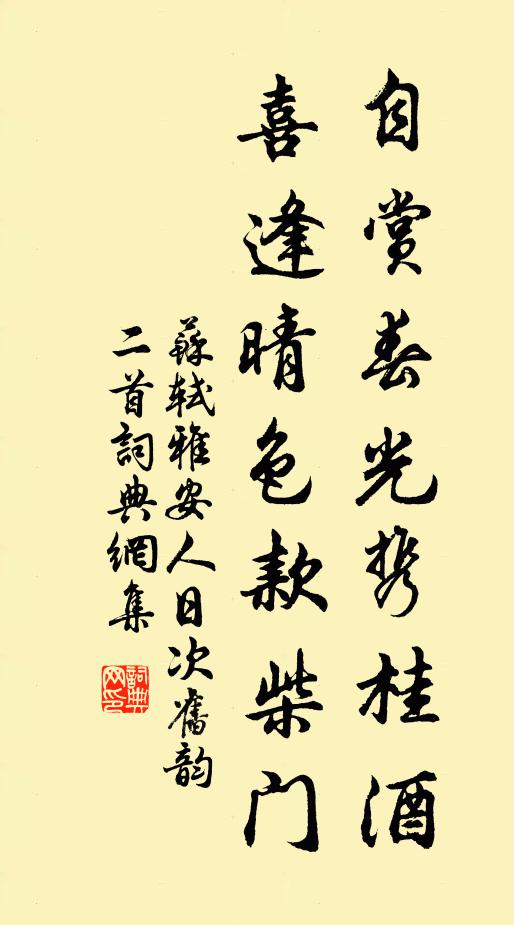 自赏春光携桂酒
喜逢晴色款柴门
蘇軾雅安人日次舊韵
二首詞典網集
詞典
网印